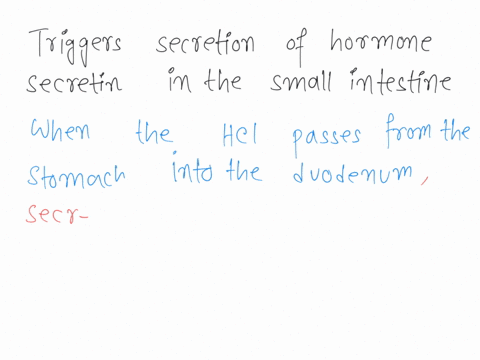 Triggers secretion of hormone
secretin in the small intestine
When the HCl passes from the
stomach into the duodenum,
secr-